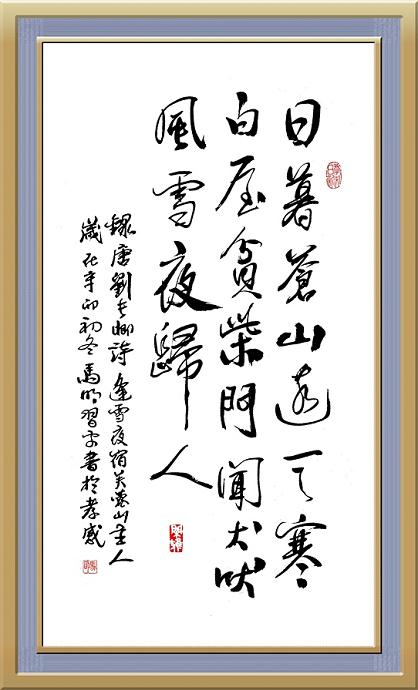 日暮蒼山遠天寒
白屋貧柴門聞犬吠
風雪夜歸人
錄唐劉長卿詩逢雪夜宿芙蓉山主人
歲在辛卯初冬馬明習書於孝感